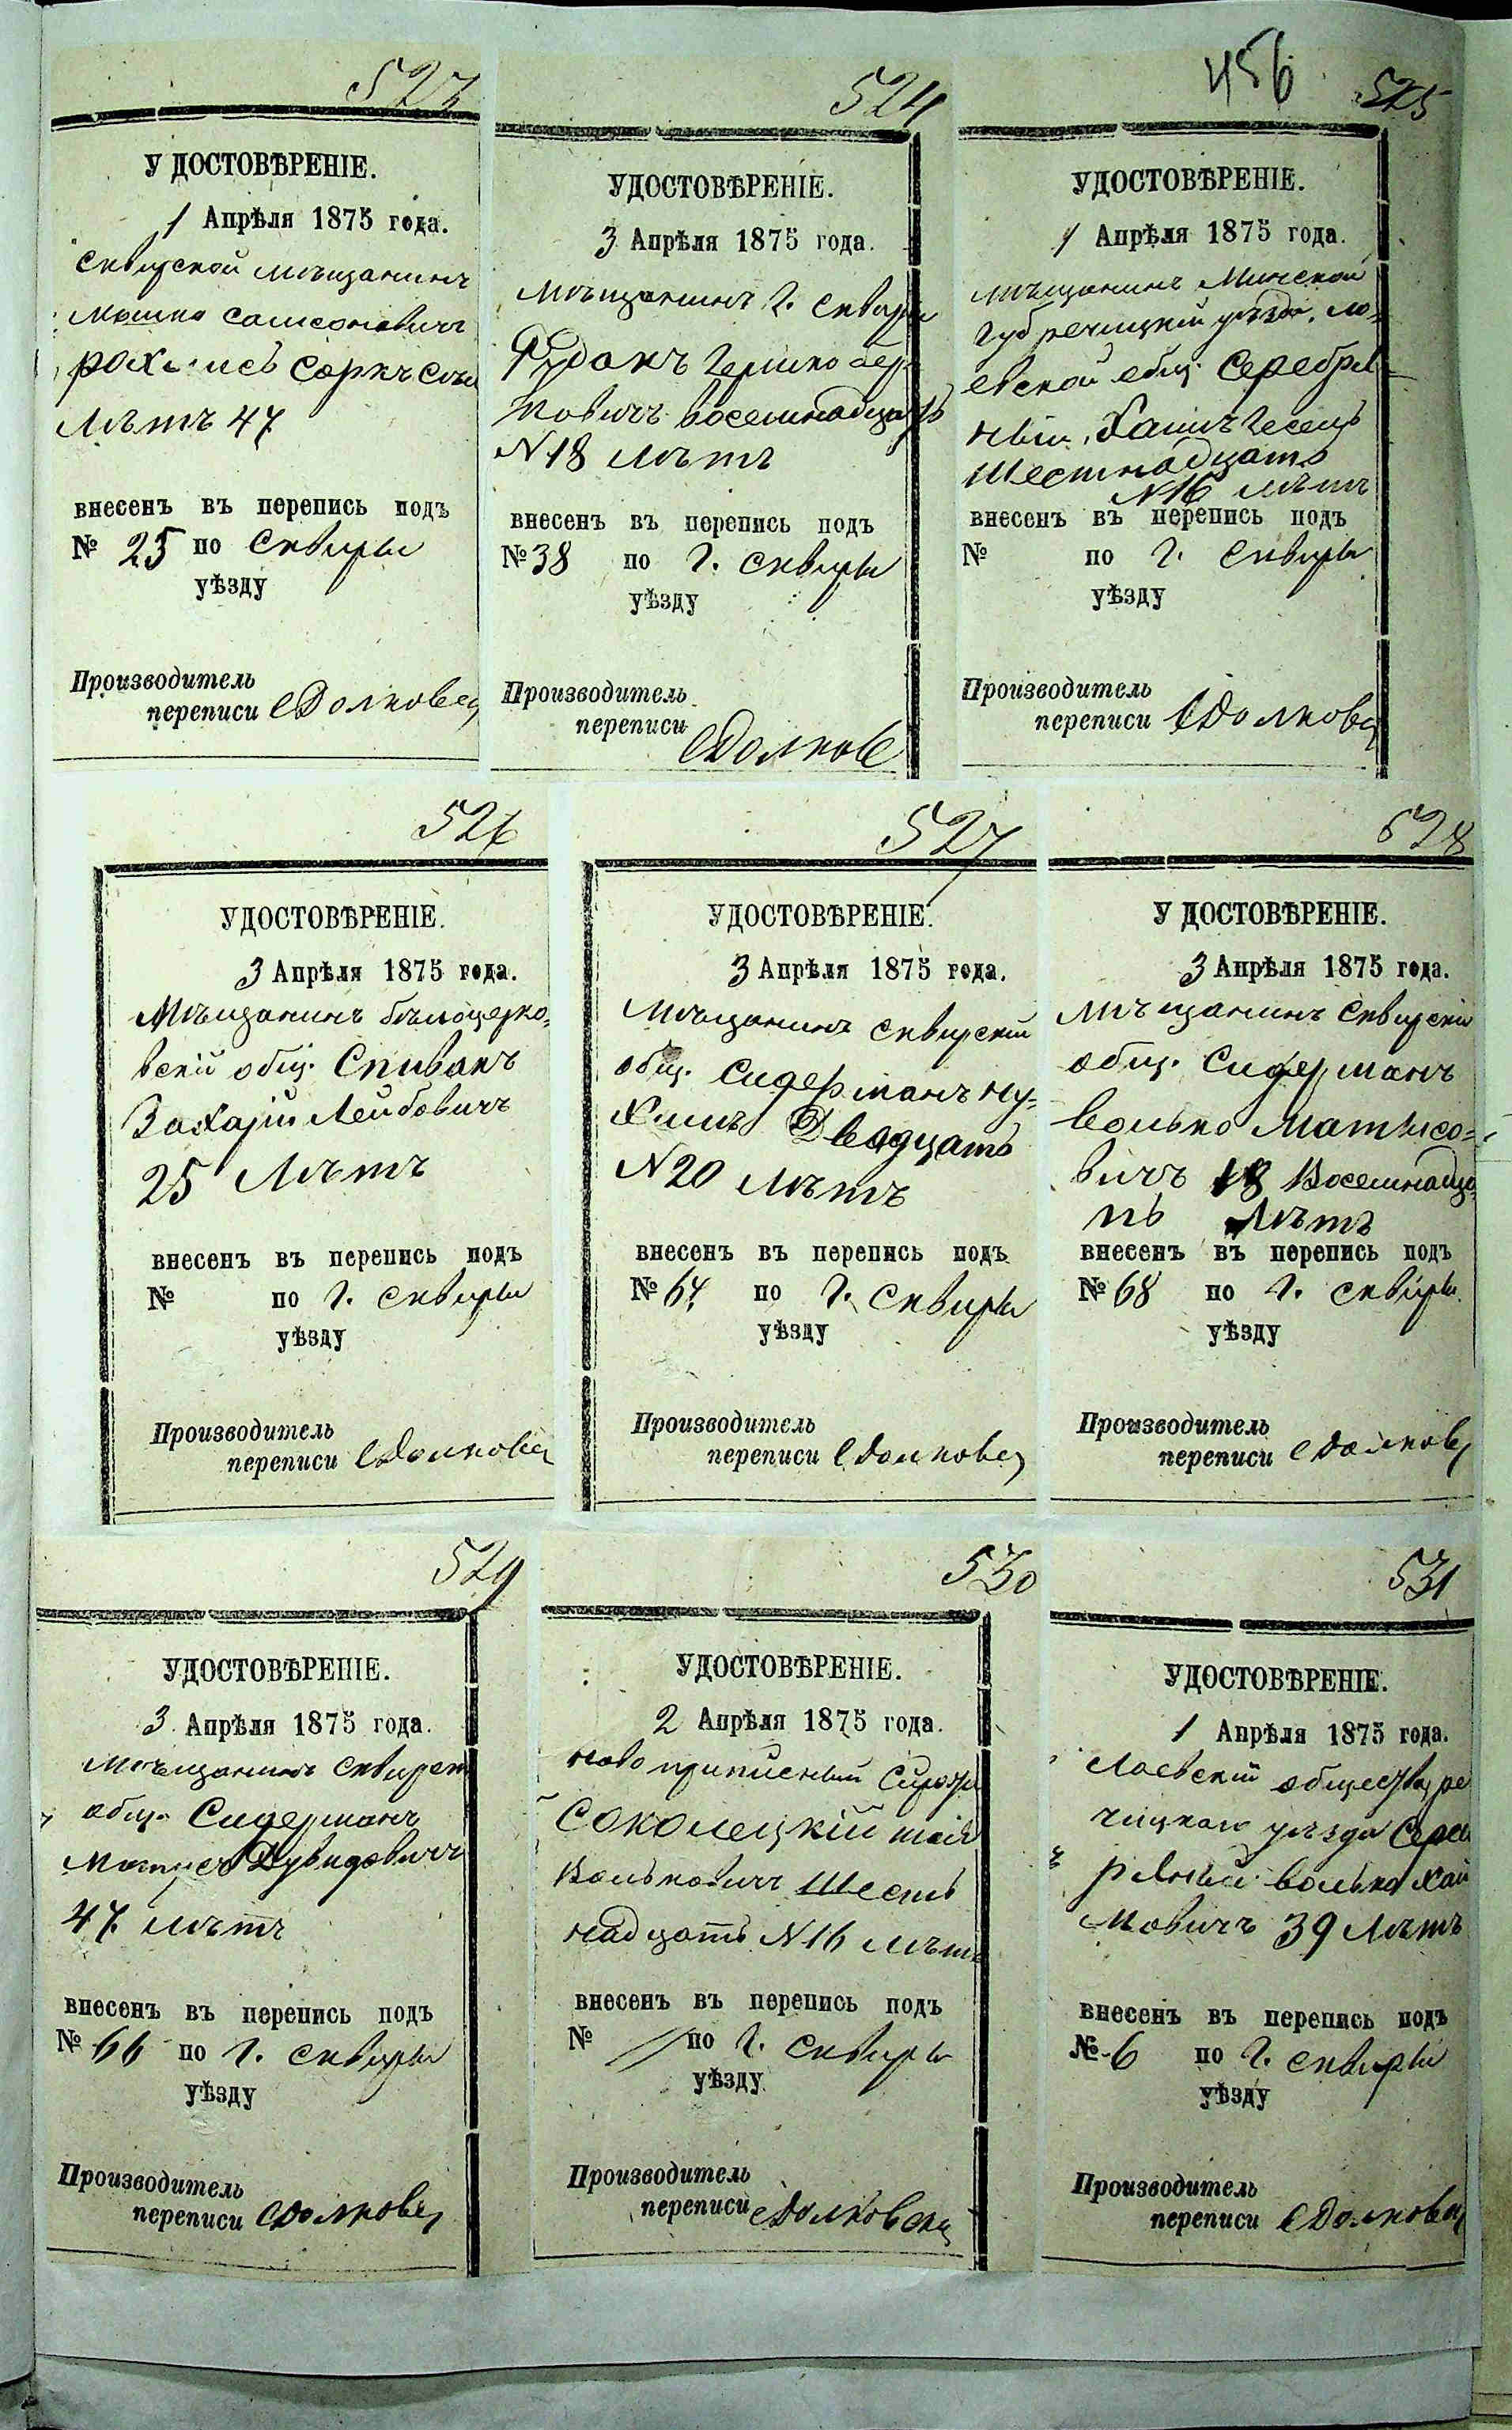 456
523
УДОСТОВѢРЕНІЕ.
1 Апрѣля 1875 года.
Сквирской мѣщанинъ
Мошко Самсоновичъ
сорокъ семь
Лѣтъ 47
внесенъ въ перепись подъ
№ 25 по Сквиры
уѣзду
Производитель
переписи
524
УДОСТОВѢРЕНІЕ.
3 Апрѣля 1875 года.
Мѣщанинъ г. Сквиры
Гершко Бер-
ковичъ восемнадцать
N 18 лѣтъ
внесенъ въ перепись подъ
№ 38 по г. Сквиры
уѣзду
Производитель
переписи
525
УДОСТОВѢРЕНІЕ.
1 Апрѣля 1875 года.
мѣщанинъ Минской
губ речицкій уѣзда, ло-
евской общ. Серебрян-
ный,
Шестнадцать
N 16 лѣтъ
внесенъ въ перепись подъ
№ по г. Сквиры
уѣзду
Производитель
переписи
526
УДОСТОВѢРЕНІЕ.
3 Апрѣля 1875 года.
Мѣщанинъ бѣлоцерко-
вскій общ. Спивакъ
Захарій Лейбовичъ
25 Лѣтъ
внесенъ въ перепись подъ
№ по г. Сквиры
уѣзду
Производитель
переписи
527
УДОСТОВѢРЕНІЕ.
3 Апрѣля 1875 года.
Мѣщанинъ Сквирскій
общ. Сидерманъ Ну-
химъ Двадцать
N 20 лѣтъ
внесенъ въ перепись подъ
№ 67 по г. Сквиры
уѣзду
Производитель
переписи
528
УДОСТОВѢРЕНІЕ.
3 Апрѣля 1875 года.
Мѣщанинъ Сквирскій
общ. Сидерманъ
Волько Матысо-
вичъ 18 Восемнадца-
ть Лѣтъ
внесенъ въ перепись подъ
№ 68 по г. Сквиры
уѣзду
Производитель
переписи
529
УДОСТОВѢРЕНІЕ.
3 Апрѣля 1875 года.
Мѣщанинъ Сквирск
общ. Сидерманъ
Матысъ Дувидовичъ
47 лѣтъ
внесенъ въ перепись подъ
№ 66 по г. Сквиры
уѣзду
Производитель
переписи
530
УДОСТОВѢРЕНІЕ.
2 Апрѣля 1875 года.
Новоприписный
Соколецкій
Вольковичъ Шесть
надцать N 16 лѣтъ
внесенъ въ перепись подъ
№ // по г. Сквиры
уѣзду
Производитель
переписи
531
УДОСТОВѢРЕНІЕ.
1 Апрѣля 1875 года.
Лоевскій общества, ре
чицкаго уѣзда Сереб
ряный Волько Хаи
мовичъ 39 Лѣтъ
внесенъ въ перепись подъ
№ 6 по г. Сквиры
уѣзду
Производитель
переписи